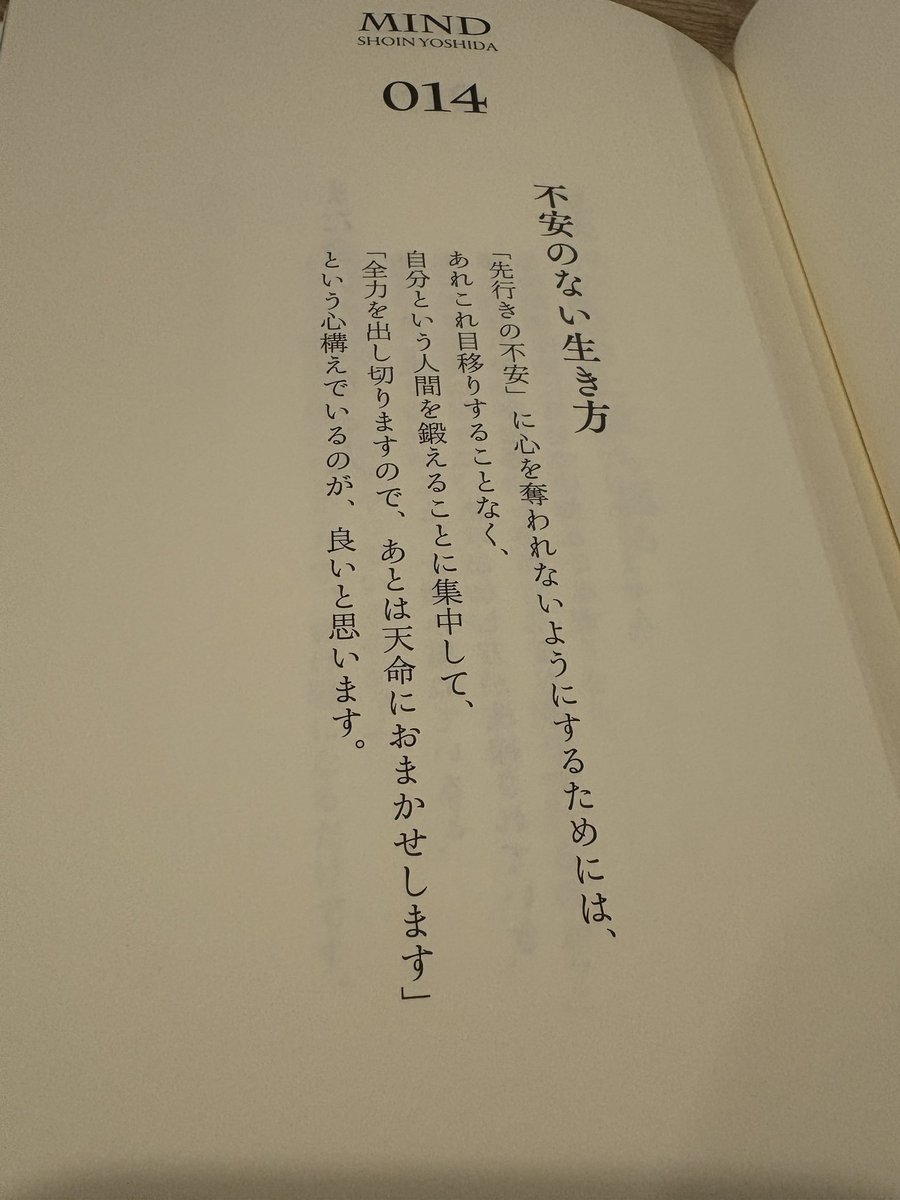 MIND
SHOIN YOSHIDA
014
不安のない生き方
「先行きの不安」に心を奪われないようにするためには、
あれこれ目移りすることなく、
自分という人間を鍛えることに集中して、
「全力を出し切りますので、あとは天命におまかせします」
という心構えでいるのが、良いと思います。